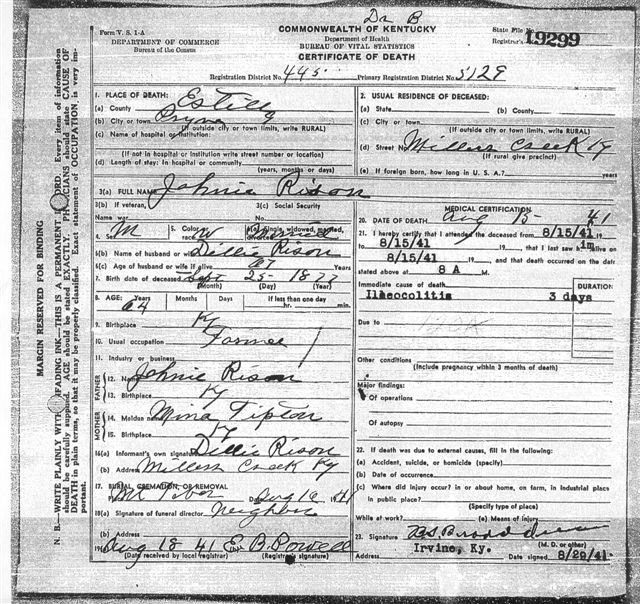 Dr B
Form V. S. 1-A
COMMONWEALTH OF KENTUCKY
State File No.
19299
DEPARTMENT OF COMMERCE
Department of Health
Bureau of the Census
BUREAU OF VITAL STATISTICS
Registrar's
CERTIFICATE OF DEATH
Registration District No. 445 Primary Registration District No. 5129
1. PLACE OF DEATH:
(a) County Estill
(b) City or town
(If outside city or town limits, write RURAL)
(c) Name of hospital or institution:
(If not in hospital or institution write street number or location)
(d) Length of stay: In hospital or community
(years, months or days)
2. USUAL RESIDENCE OF DECEASED:
(a) State (b) County
(c) City or town
(If outside city or town limits, write RURAL)
(d) Street No. Millers Creek Ky
(If rural give precinct)
(e) If foreign born, how long in U. S. A.? years
3(a) FULL NAME Johnie Rison
3(b) If veteran, 3(c) Social Security
name war No.
4. Sex M 5. Color or race W 6(a) Single, widowed, married, divorced
6(b) Name of husband or wife Dillie Rison
6(c) Age of husband or wife if alive 67 Years
7. Birth date of deceased Sept 25- 1877
(Month) (Day) (Year)
8. AGE: Years Months Days If less than one day
64 hr. min.
9. Birthplace Ky
10. Usual occupation Farmer
11. Industry or business
FATHER
12. Name Johnie Rison
13. Birthplace Ky
MOTHER
14. Maiden name Mina Tipton
15. Birthplace Ky
16(a) Informant's own signature Dillie Rison
(b) Address Millers Creek Ky
17. BURIAL, CREMATION, OR REMOVAL
Date Aug 16 1941
18(a) Signature of funeral director Neighbors
19 Aug 18 41 E. B. Powell
(Date received by local registrar) (Registrar's signature)
MEDICAL CERTIFICATION
20. DATE OF DEATH Aug 15- 41
21. I hereby certify that I attended the deceased from 8/15/41, 19
to 8/15/41, 19 , that I last saw him alive on
8/15/41, 19 , and that death occurred on the date
stated above at 8 A M.
Immediate cause of death
DURATION
Ileocolitis 3 days
Due to
Other conditions
(Include pregnancy within 3 months of death)
Major findings:
Of operations
Of autopsy
22. If death was due to external causes, fill in the following:
(a) Accident, suicide, or homicide (specify)
(b) Date of occurrence
(c) Where did injury occur? in or about home, on farm, in industrial place
in public place?
(Specify type of place)
While at work? (e) Means of injury
23. Signature
(M. D. or other)
Address Irvine, Ky. Date signed 8/29/41
MARGIN RESERVED FOR BINDING
N. B.—WRITE PLAINLY WITH UNFADING INK—THIS IS A PERMANENT RECORD. Every item of information
should be carefully supplied. AGE should be stated EXACTLY. PHYSICIANS should state CAUSE OF
DEATH in plain terms, so that it may be properly classified. Exact statement of OCCUPATION is very im-
portant.